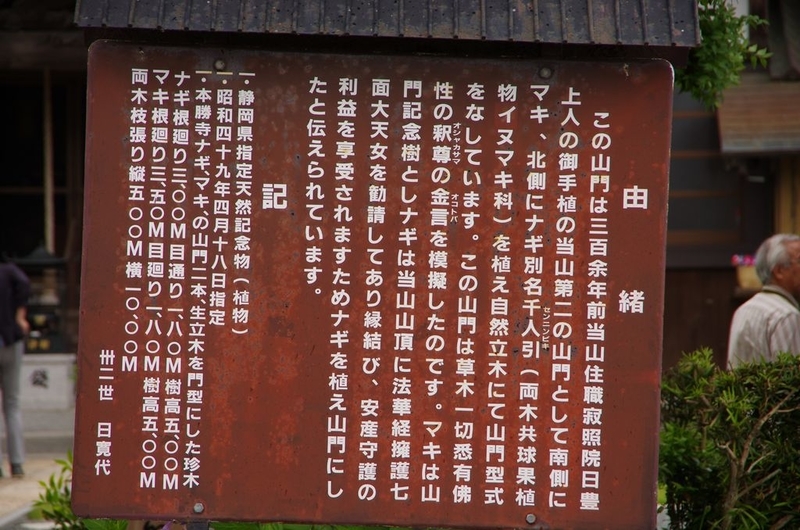 由緒
この山門は三百余年前当山住職寂照院日豊
上人の御手植の当山第二の山門として南側に
マキ、北側にナギ別名千人引(両木共球果植
センニンビキ
物イヌマキ科)を植え自然立木にて山門型式
をなしています。この山門は草木一切悉有佛
性の釈尊の金言を模擬したのです。マキは山
オシャカサマ
オコトバ
門記念樹としナギは当山山頂に法華経擁護七
面大天女を勧請してあり縁結び、安産守護の
利益を享受されますためナギを植え山門にし
たと伝えられています。
記
一.静岡県指定天然記念物(植物)
一.昭和四十九年四月十八日指定
一.本勝寺ナギ、マキ、の山門二本、生立木を門型にした珍木
ナギ根廻り三、〇〇M目通り一、八〇M樹高五、〇〇M
マキ根廻り三、五〇M目廻り一、八〇M樹高五、〇〇M
両木枝張り縦五〇〇M横一〇、〇〇M
卅二世 日寛代